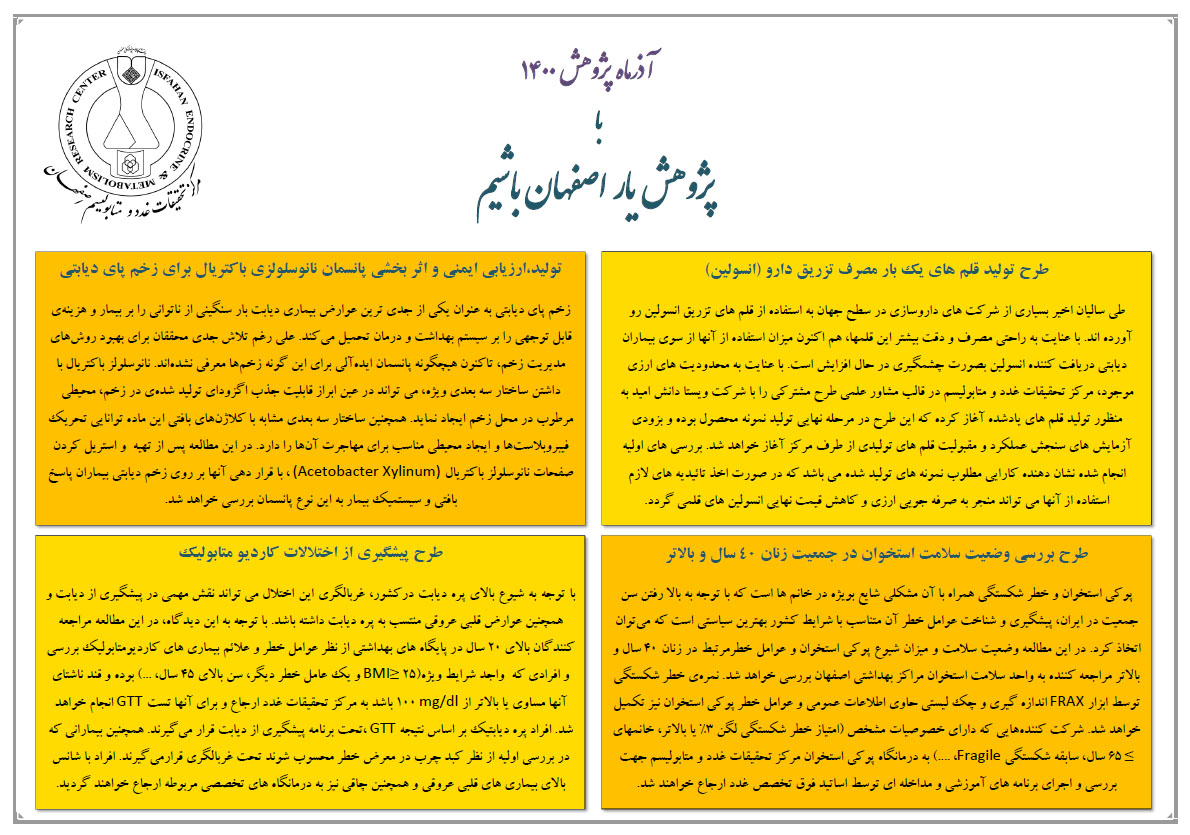 آذرماه پژوهش ۱۴۰۰
با
پژوهش یار اصفهان باشیم
ISFAHAN ENDOCRINE & METABOLISM RESEARCH CENTER
مرکز تحقیقات غدد و متابولیسم اصفهان
طرح تولید قلم های یک بار مصرف تزریق دارو (انسولین)
طی سالیان اخیر بسیاری از شرکت های داروسازی در سطح جهان به استفاده از قلم های تزریق انسولین رو
آورده اند. با عنایت به راحتی مصرف و دقت بیشتر این قلمها، هم اکنون میزان استفاده از آنها از سوی بیماران
دیابتی دریافت کننده انسولین بصورت چشمگیری در حال افزایش است. با عنایت به محدودیت های ارزی
موجود، مرکز تحقیقات غدد و متابولیسم در قالب مشاور علمی طرح مشترکی را با شرکت ویستا دانش امید به
منظور تولید قلم های یادشده آغاز کرده که این طرح در مرحله نهایی تولید نمونه محصول بوده و بزودی
آزمایش های سنجش عملکرد و مقبولیت قلم های تولیدی از طرف مرکز آغاز خواهد شد. بررسی های اولیه
انجام شده نشان دهنده کارایی مطلوب نمونه های تولید شده می باشد که در صورت اخذ تائیدیه های لازم
استفاده از آنها می تواند منجر به صرفه جویی ارزی و کاهش قیمت نهایی انسولین های قلمی گردد.
تولید،ارزیابی ایمنی و اثر بخشی پانسمان نانوسلولزی باکتریال برای زخم پای دیابتی
زخم پای دیابتی به عنوان یکی از جدی ترین عوارض بیماری دیابت بار سنگینی از ناتوانی را بر بیمار و هزینه‌ی
قابل توجهی را بر سیستم بهداشت و درمان تحمیل می‌کند. علی رغم تلاش جدی محققان برای بهبود روش‌های
مدیریت زخم، تاکنون هیچگونه پانسمان ایده‌آلی برای این گونه زخم‌ها معرفی نشده‌اند. نانوسلولز باکتریال با
داشتن ساختار سه بعدی ویژه، می تواند در عین ابراز قابلیت جذب اگزودای تولید شده‌ی در زخم، محیطی
مرطوب در محل زخم ایجاد نماید. همچنین ساختار سه بعدی مشابه با کلاژن‌های بافتی این ماده توانایی تحریک
فیبروبلاست‌ها و ایجاد محیطی مناسب برای مهاجرت آن‌ها را دارد. در این مطالعه پس از تهیه و استریل کردن
صفحات نانوسلولز باکتریال (Acetobacter Xylinum) ، با قرار دهی آنها بر روی زخم دیابتی بیماران پاسخ
بافتی و سیستمیک بیمار به این نوع پانسمان بررسی خواهد شد.
طرح بررسی وضعیت سلامت استخوان در جمعیت زنان ۴۰ سال و بالاتر
پوکی استخوان و خطر شکستگی همراه با آن مشکلی شایع بویژه در خانم ها است که با توجه به بالا رفتن سن
جمعیت در ایران، پیشگیری و شناخت عوامل خطر آن متناسب با شرایط کشور بهترین سیاستی است که می‌توان
اتخاذ کرد. در این مطالعه وضعیت سلامت و میزان شیوع پوکی استخوان و عوامل خطرمرتبط در زنان ۴۰ سال و
بالاتر مراجعه کننده به واحد سلامت استخوان مراکز بهداشتی اصفهان بررسی خواهد شد. نمره‌ی خطر شکستگی
توسط ابزار FRAX اندازه گیری و چک لیستی حاوی اطلاعات عمومی و عوامل خطر پوکی استخوان نیز تکمیل
خواهد شد. شرکت کننده‌هایی که دارای خصوصیات مشخص (امتیاز خطر شکستگی لگن ۳٪ یا بالاتر، خانمهای
≥ ۶۵ سال، سابقه شکستگی Fragile، ....) به درمانگاه پوکی استخوان مرکز تحقیقات غدد و متابولیسم جهت
بررسی و اجرای برنامه های آموزشی و مداخله ای توسط اساتید فوق تخصص غدد ارجاع خواهند شد.
طرح پیشگیری از اختلالات کاردیو متابولیک
با توجه به شیوع بالای پره دیابت درکشور، غربالگری این اختلال می تواند نقش مهمی در پیشگیری از دیابت و
همچنین عوارض قلبی عروقی منتسب به پره دیابت داشته باشد. با توجه به این دیدگاه، در این مطالعه مراجعه
کنندگان بالای ۲۰ سال در پایگاه های بهداشتی از نظر عوامل خطر و علائم بیماری های کاردیومتابولیک بررسی
و افرادی که واجد شرایط ویژه(BMI≥ ۲۵ و یک عامل خطر دیگر، سن بالای ۴۵ سال، ...) بوده و قند ناشتای
آنها مساوی یا بالاتر از ۱۰۰ mg/dl باشد به مرکز تحقیقات غدد ارجاع و برای آنها تست GTT انجام خواهد
شد. افراد پره دیابتیک بر اساس نتیجه GTT ،تحت برنامه پیشگیری از دیابت قرار می‌گیرند. همچنین بیمارانی که
در بررسی اولیه از نظر کبد چرب در معرض خطر محسوب شوند تحت غربالگری قرارمی‌گیرند. افراد با شانس
بالای بیماری های قلبی عروقی و همچنین چاقی نیز به درمانگاه های تخصصی مربوطه ارجاع خواهند گردید.